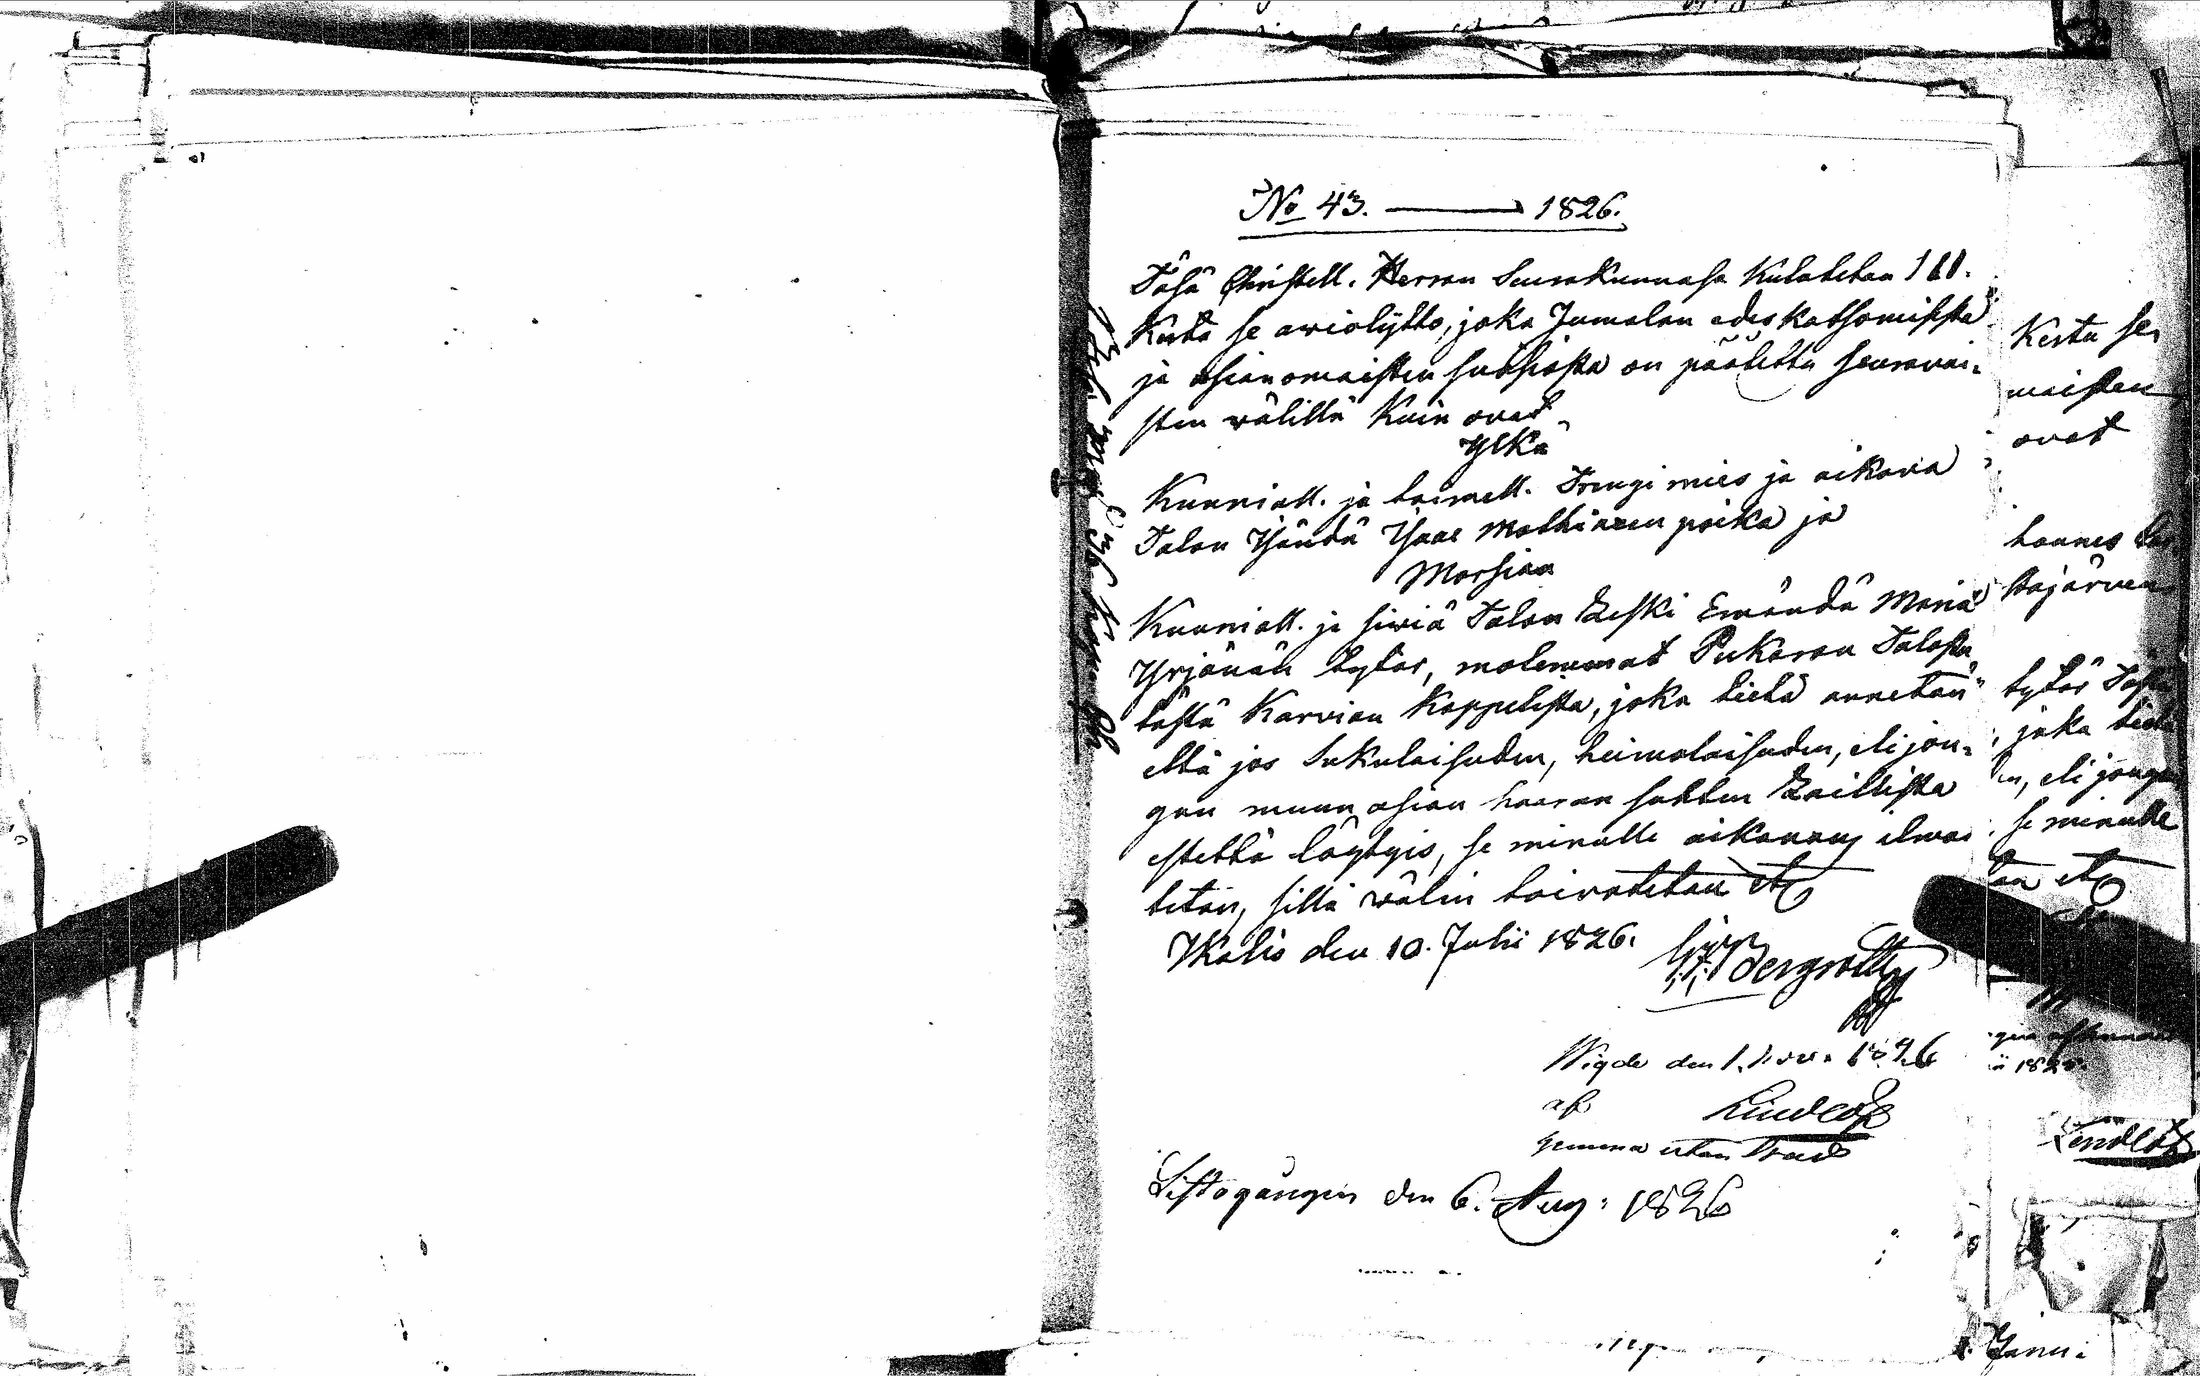 No 43. — 1826.
Täsä Christell. Herran Seurakunnasa Kulutetan 1 11.
Kerta se aviokäytto, joka Jumalan edeskatsomisesta
ja asianomaisten suosiosta on päätetty seuravai-
sten wälillä Kuin ovat
Ylkä
Kunniall. ja toimell. Trengi mies ja aikova
Talon Isändä Isaac Matthiaxen poika ja
Morsian
Kunniall. ja siwiä Talon Leski Emändä Maria
Yrjänän tytär, molemmat Pukaran Talosta
tästä Karvian Kappelista, joka tietä annetan
että jos Sukulaisuden, heimolaisuden, eli jon-
gun muun asian haaran suhten Laillista
estettä löytyis, se minulle aikanans ilmoi
tetan, sillä wälin toivotetan etc
Ikalis den 10. Julii 1826.
Bergroth
Wigde den 1. Nov. 1826
af Lindlöf
hemma utan krad
Sistagången den 6. Aug: 1826
Kerta se
maisten
ovat
hannes
tajärven
tytär Tästä
, joka tietä
en, eli jongun
se minulle
tan etc
1825.
Lindlöf
Janu: